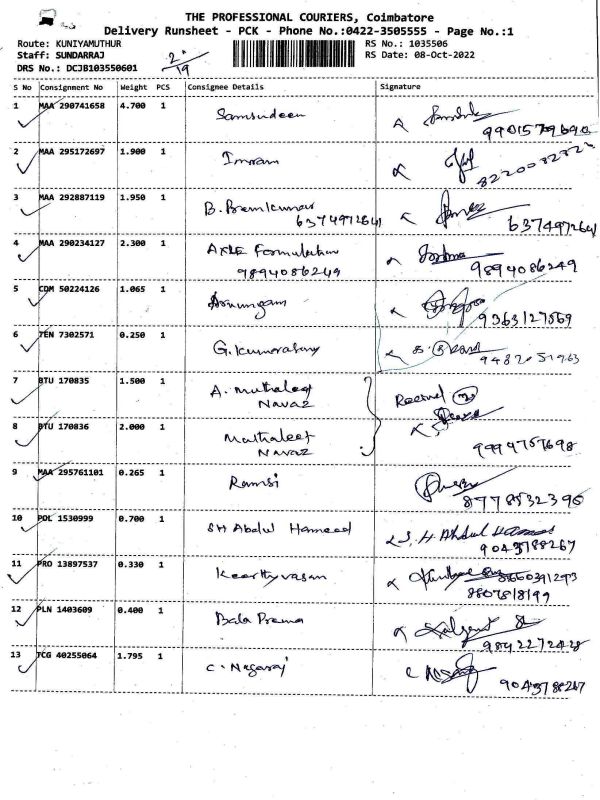 THE PROFESSIONAL COURIERS, Coimbatore
Delivery Runsheet - PCK - Phone No.:0422-3505555 - Page No.:1
Route: KUNIYAMUTHUR RS No.: 1035506
Staff: SUNDARRAJ RS Date: 08-Oct-2022
DRS No.: DCJB103550601
S No Consignment No Weight PCS Consignee Details Signature
1 MAA 290741658 4.700 1 Samsudeen
2 MAA 295172697 1.900 1 Imram
3 MAA 292887119 1.950 1 B. Bremkumar
6374972641 6374972641
4 MAA 290234127 2.300 1 AXLE Formulation
9894086249 9894086249
5 COM 50224126 1.065 1 Arumugam
9363127869
6 TEN 7302571 0.250 1 G. Kumorasamy
7 BTU 170835 1.500 1 A. Muthaleef
Navaz
8 BTU 170836 2.000 1 Muthaleef
Navaz 9994757698
9 MAA 295761101 0.265 1 Ramsi
8778532396
10 POL 1530999 0.700 1 SH Abdul Hameed S. H. Abdul Hameed
9043788267
11 PRO 13897537 0.330 1 Keerthyvasan
8807818199
12 PLN 1403609 0.400 1 Bala Prema
9842272428
13 TCG 40255064 1.795 1 C. Nagaraj
9043788267